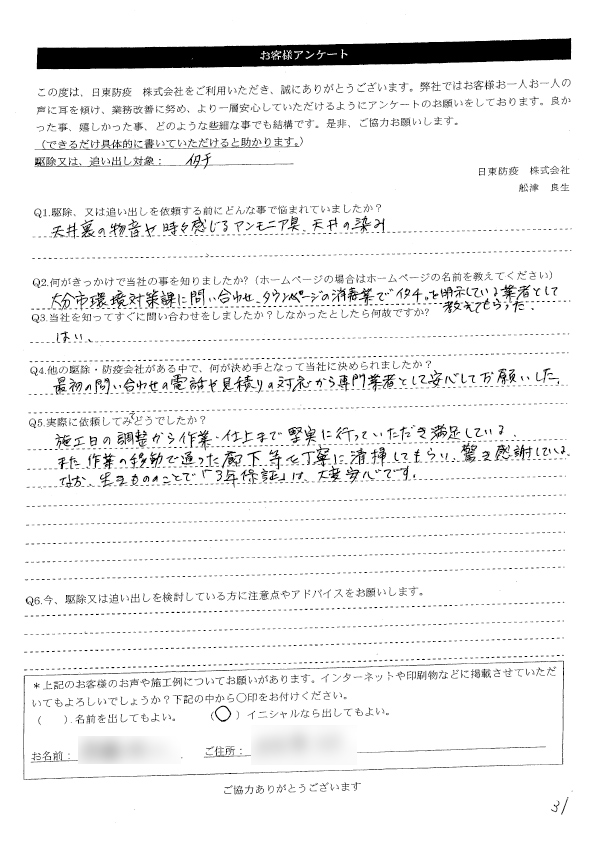 お客様アンケート
この度は、日東防疫 株式会社をご利用いただき、誠にありがとうございます。弊社ではお客様お一人お一人の
声に耳を傾け、業務改善に努め、より一層安心していただけるようにアンケートのお願いをしております。良か
った事、嬉しかった事、どのような些細な事でも結構です。是非、ご協力お願いします。
（できるだけ具体的に書いていただけると助かります。）
駆除又は、追い出し対象： イタチ
日東防疫 株式会社
舩津 良生
Q1.駆除、又は追い出しを依頼する前にどんな事で悩まれていましたか？
天井裏の物音や時々感じるアンモニア臭、天井の染み
Q2.何がきっかけで当社の事を知りましたか？（ホームページの場合はホームページの名前を教えてください）
大分市環境対策課に問い合わせ、タウンページの消毒業でイタチ。を明示している業者として
教えてもらった。
Q3.当社を知ってすぐに問い合わせをしましたか？しなかったとしたら何故ですか？
はい、
Q4.他の駆除・防疫会社がある中で、何が決め手となって当社に決められましたか？
最初の問い合わせの電話や見積りの対応から専門業者として安心してお願いした。
Q5.実際に依頼してみてどうでしたか？
施工日の調整から作業・仕上まで堅実に行っていただき満足している。
また作業の移動で通った廊下等も丁寧に清掃してもらい、驚き感謝している。
なお、生きもののことで「3年保証」は、大変安心です。
Q6.今、駆除又は追い出しを検討している方に注意点やアドバイスをお願いします。
＊上記のお客様のお声や施工例についてお願いがあります。インターネットや印刷物などに掲載させていただ
いてもよろしいでしょうか？下記の中から〇印をお付けください。
（ ）.名前を出してもよい。 （〇）イニシャルなら出してもよい。
お名前： ご住所：
ご協力ありがとうございます
31